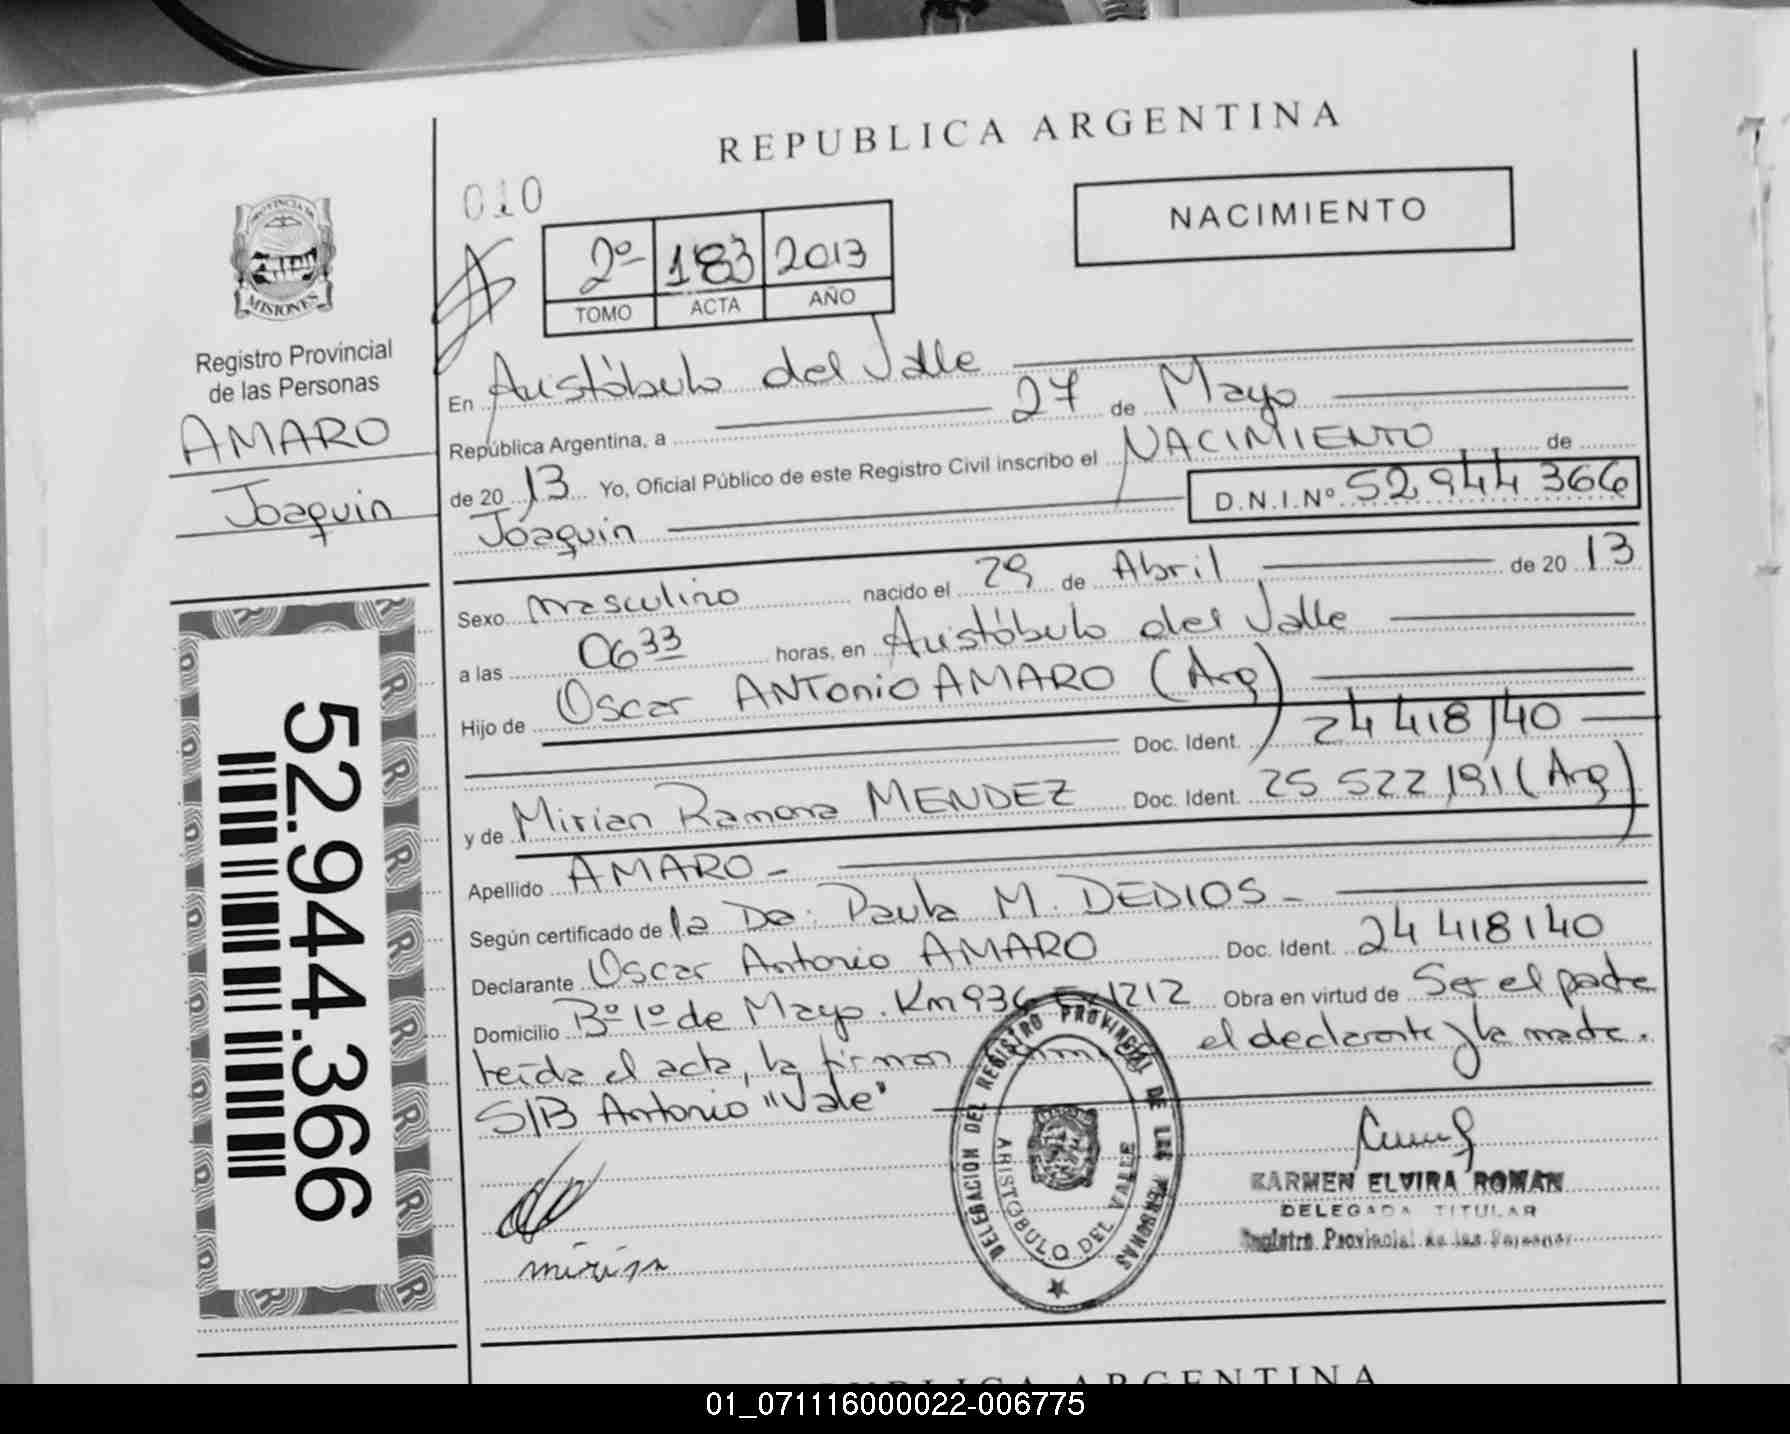 REPUBLICA ARGENTINA
010
NACIMIENTO
2º 183 2013
TOMO ACTA AÑO
PROVINCIA DE
MISIONES
Registro Provincial
de las Personas
AMARO
Joaquin
En Aristóbulo del Valle
República Argentina, a 27 de Mayo
de 2013 Yo, Oficial Público de este Registro Civil inscribo el NACIMIENTO de
Joaquin D.N.I.Nº 52 944 366
Sexo masculino nacido el 29 de Abril de 2013
a las 0633 horas, en Aristóbulo del Valle
Hijo de Oscar ANTonio AMARO (Arg)
Doc. Ident. 24 418 140
y de Mirian Ramona MENDEZ Doc. Ident. 25 522 191 (Arg)
Apellido AMARO -
Según certificado de la Da. Paula M. DEDIOS -
Declarante Oscar Antonio AMARO Doc. Ident. 24 418 140
Domicilio Bº 1º de Mayo. Km 936 1212 Obra en virtud de Ser el padre
leída el acta, la firman el declarante y la madre.
S/B Antonio "Vale"
mirian
52.944.366
DELEGACION DEL REGISTRO PROVINCIAL DE LAS PERSONAS
ARISTOBULO DEL VALLE
KARMEN ELVIRA ROMAN
DELEGADA TITULAR
Registro Provincial de las Personas
REPUBLICA ARGENTINA
01_071116000022-006775